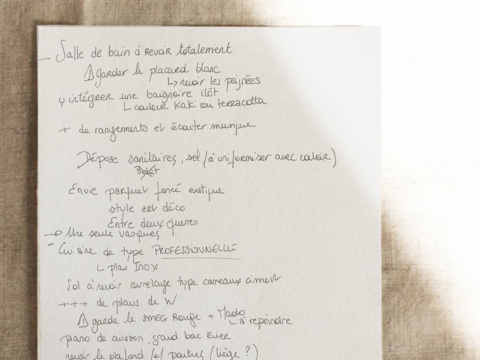 — Salle de bain à revoir totalement
⚠ garder le placard blanc
↳ revoir les poignées
intégrer une baignoire îlot
↳ couleur Kaki ou terracotta
+ de rangements et écouter musique
Dépose sanitaires, sol (à uniformiser avec couloir)
Envie parquet foncé exotique
style art déco
Entre deux guerres
→ Une seule vasques
- Cuisine de type PROFESSIONNELLE
↳ plan Inox
Sol à revoir carrelage type carreaux ciment
+++ de plans de W
⚠ garde le smeg Rouge +
↳ à repeindre
piano de cuisson, grand bac évier
revoir le plafond et poutres (liège ?)